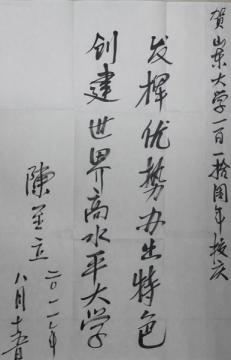 贺山东大学一百一拾周年校庆
发挥优势办出特色
创建世界高水平大学
陈 立 二〇一一年
八月十五日